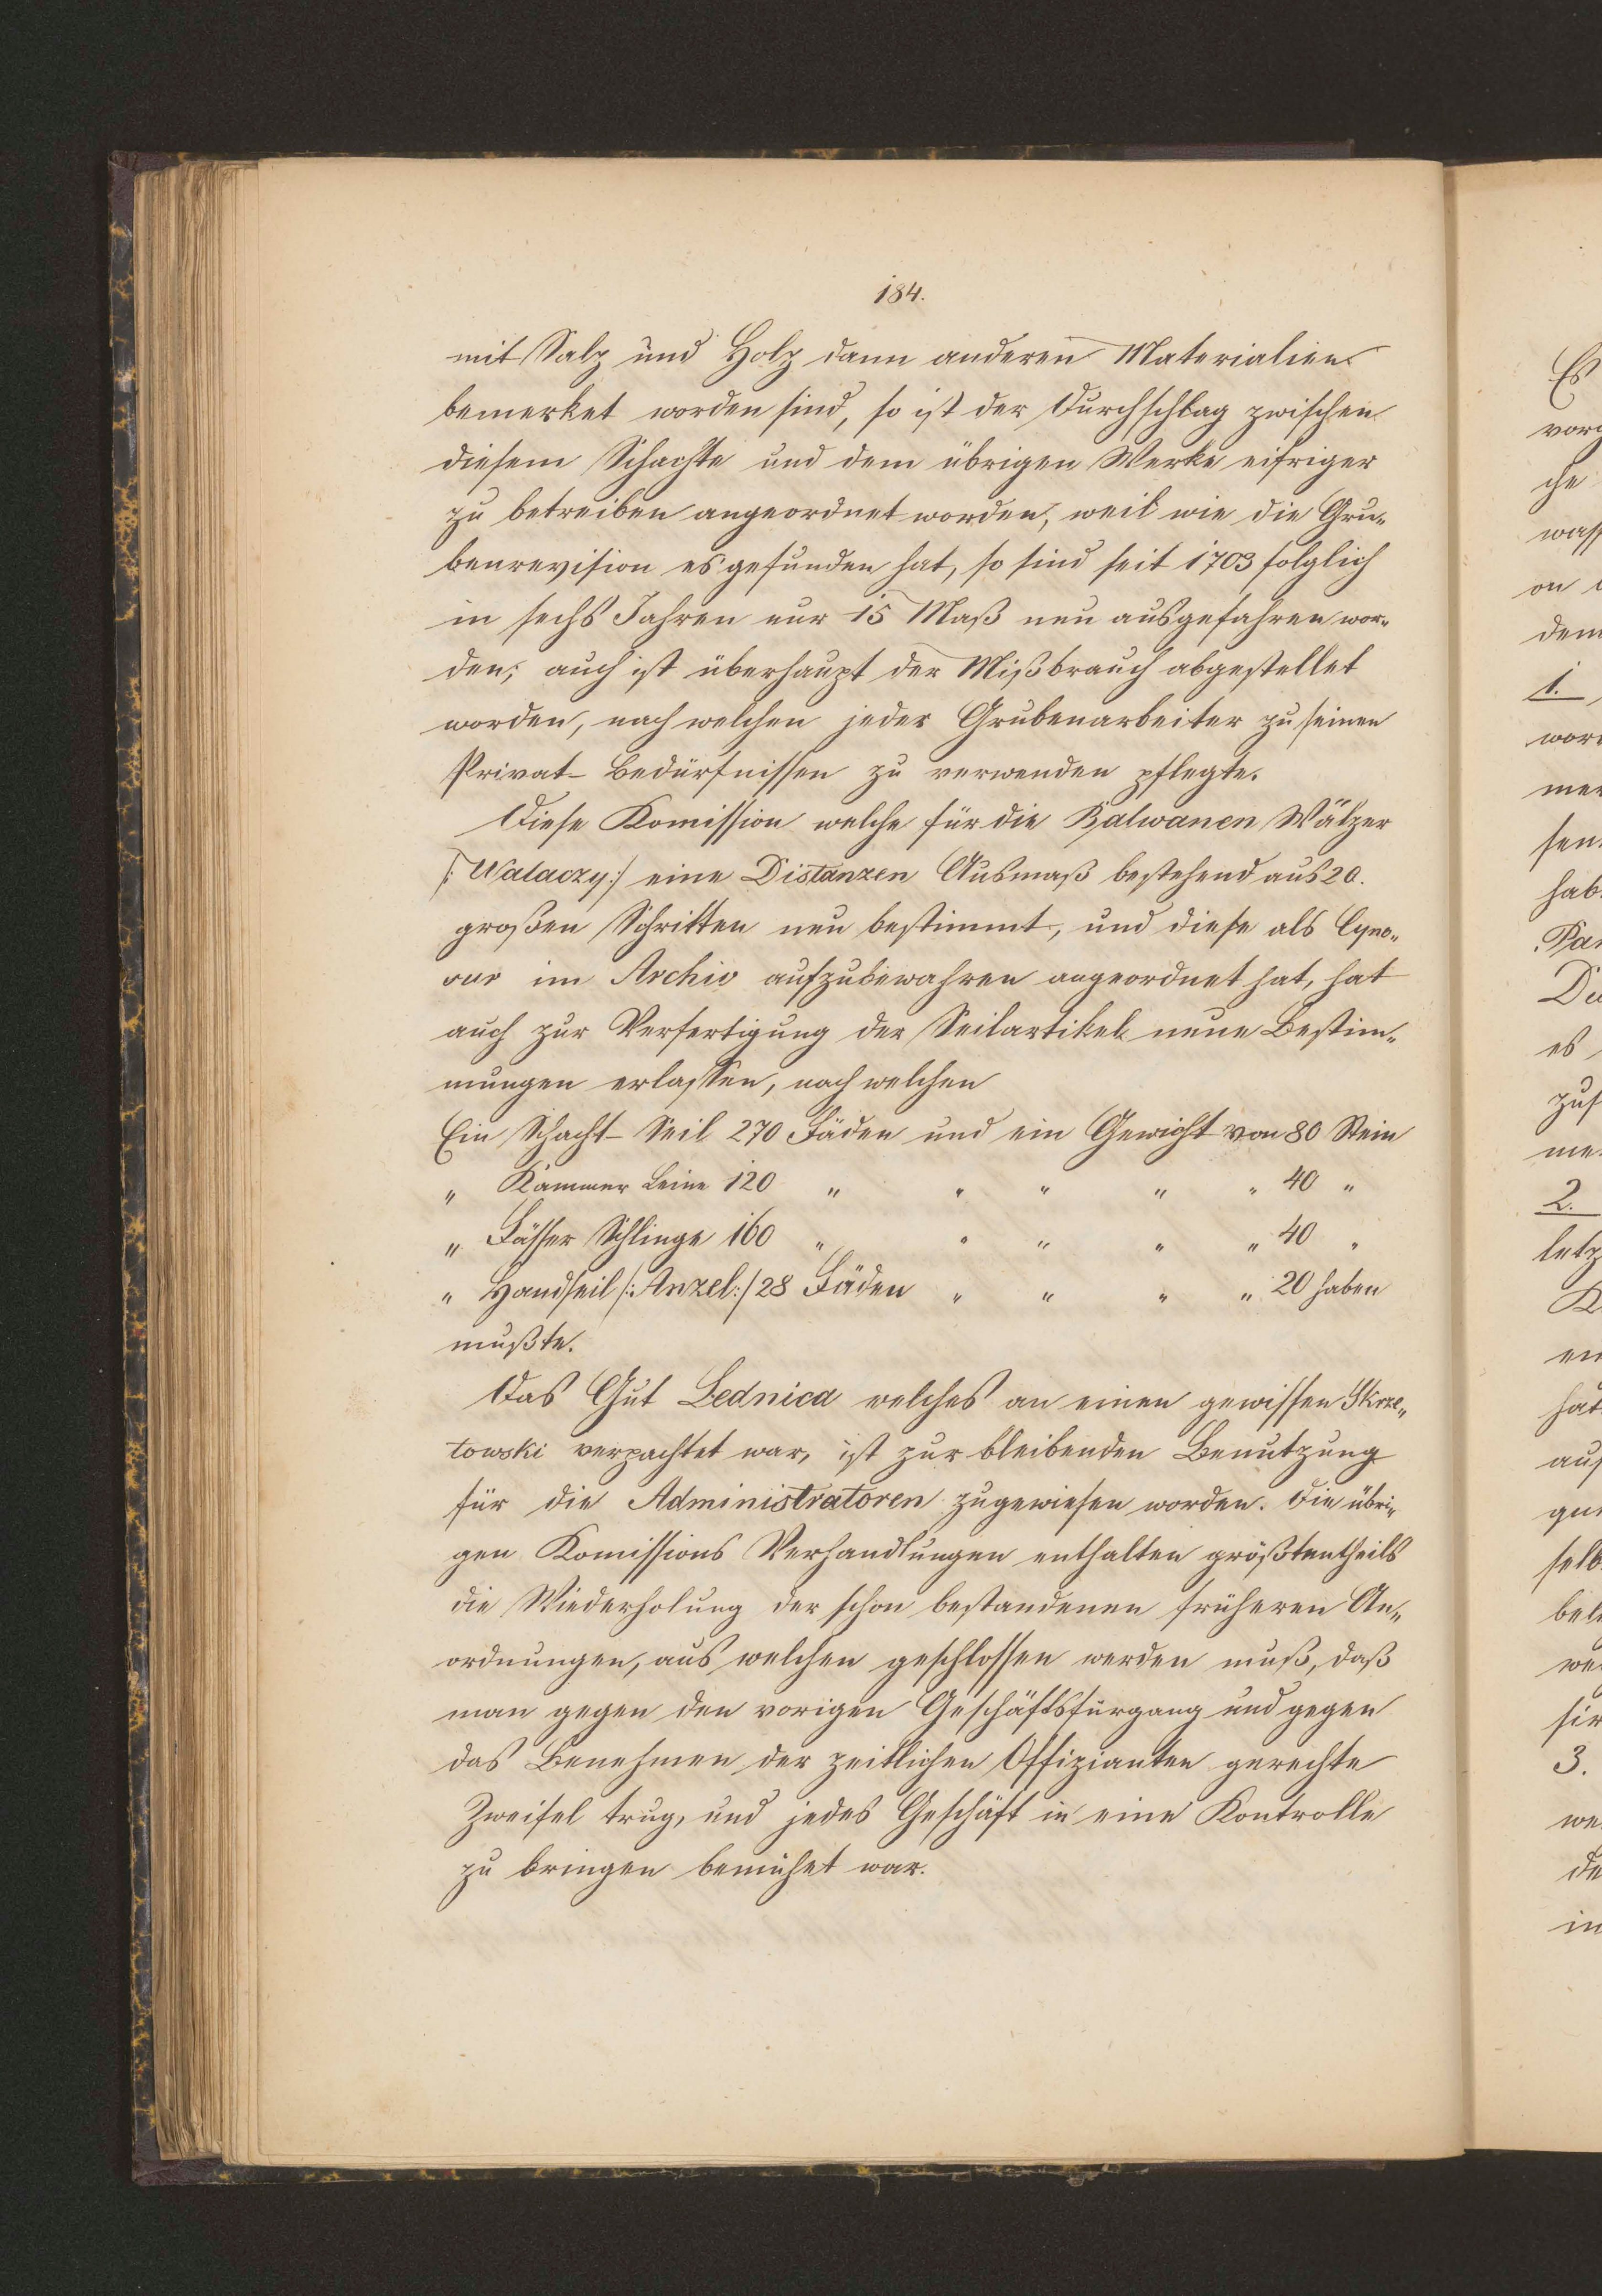 184.
mit Salz und Holz dann anderen Materialien
bemerket worden sind, so ist der Durchschlag zwischen
diesem Schachte und dem übrigen Werke eifriger
zu betreiben angeordnet worden, weil wie die Gru„
benrevision es gefunden hat, so sind seit 1703 folglich
in sechs Jahren nur 15 Maß neu ausgefahren wor„
den; auch ist überhaupt der Mißbrauch abgestellet
worden, nach welchen jeder Grubenarbeiter zu seinen
Privat-Bedürfnissen zu verwenden pflegte.
Diese Komission welche für die Balwanen Wälzer
/:Walaczy:/ eine Distanzen Ausmaß bestehend aus 20.
großen Schritten neu bestimmt, und diese als Cyno„
sur im Archiv aufzubewahren angeordnet hat, hat
auch zur Verfertigung der Seilartikel neue Bestim„
mungen erlassen, nach welchen
Ein Schacht-Seil 270 Fäden und ein Gewicht von 80 Stein
„ Kammer Leine 120 „ „ „ „ „ 40 „
„ Fässer Schlinge 160 „ „ „ „ „ 40 „
„ Handseil /:Anzel:/ 28 Fäden „ „ „ „ 20 haben
mußte.
Das Gut Lednica welches an einen gewissen Skrze„
towski verpachtet war, ist zur bleibenden Benutzung
für die Administratoren zugewiesen worden. Die übri„
gen Komissions Verhandlungen enthalten größtentheils
die Wiederholung der schon bestandenen früheren An„
ordnungen, aus welchen geschlossen werden muß, daß
man gegen den vorigen Geschäftsfürgang und gegen
das Benehmen der zeitlichen Offizianten gerechte
Zweifel trug, und jedes Geschäft in eine Kontrolle
zu bringen bemühet war.